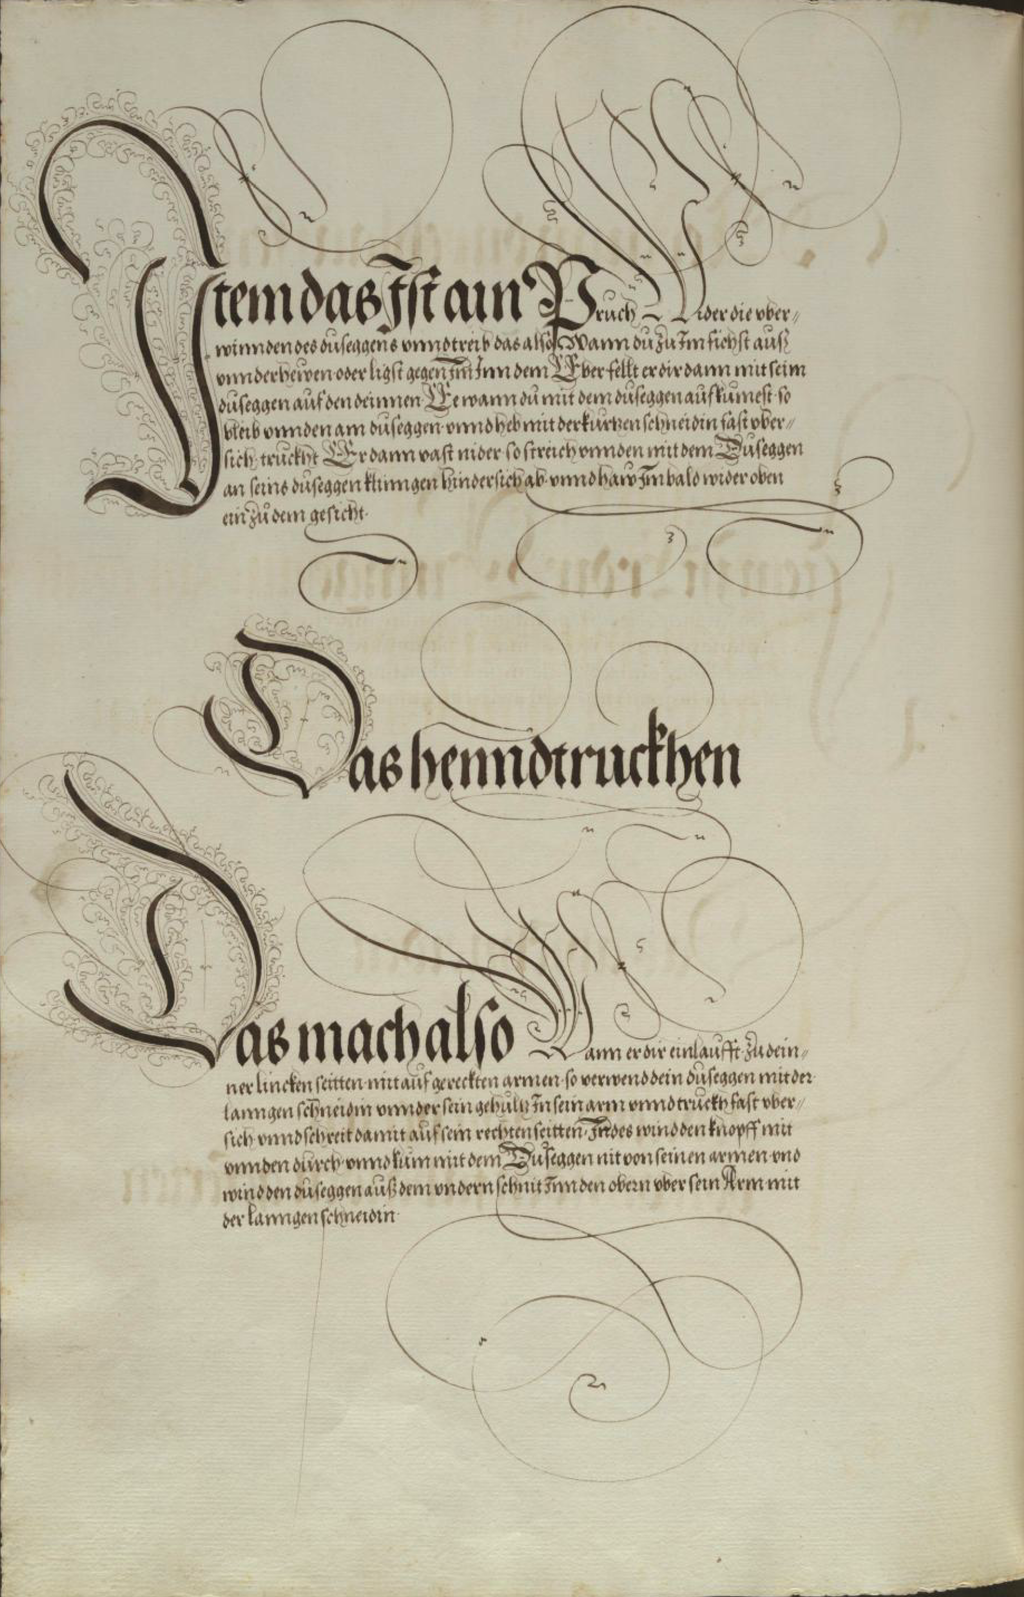 Item das Ist ain Pruch Wider die vber-
winnden des duseggens vnnd treib das also Wann du zu Im fichst auß
vnnderhewen oder ligst gegen Im Inn dem Eber fellt er dir dann mit seim
duseggen auf den deinnen Ee wann du mit dem duseggen auf kumest so
bleib vnnden am duseggen vnnd heb mit der kurtzen schneidin fast vber-
sich truckht Er dann vast nider so streich vnnden mit dem Duseggen
an seins duseggen klinngen hindersich ab vnnd haw Im bald wider oben
ein zu dem gesicht
Das henndtruckhen
Das mach also Wann er dir einlaufft zu dein-
ner lincken seitten mit auf gereckten armen so verwend dein duseggen mit der
lanngen schneidin vnnder sein gehultz In sein arm vnnd truckh fast vber-
sich vnnd schreit damit auf sein rechten seitten Indes wind den knopff mit
vnnden durch vnnd kum mit dem Duseggen nit von seinen armen vnd
wind den duseggen auß dem vndern schnit Inn den obern vber sein Arm mit
der lanngen schneidin